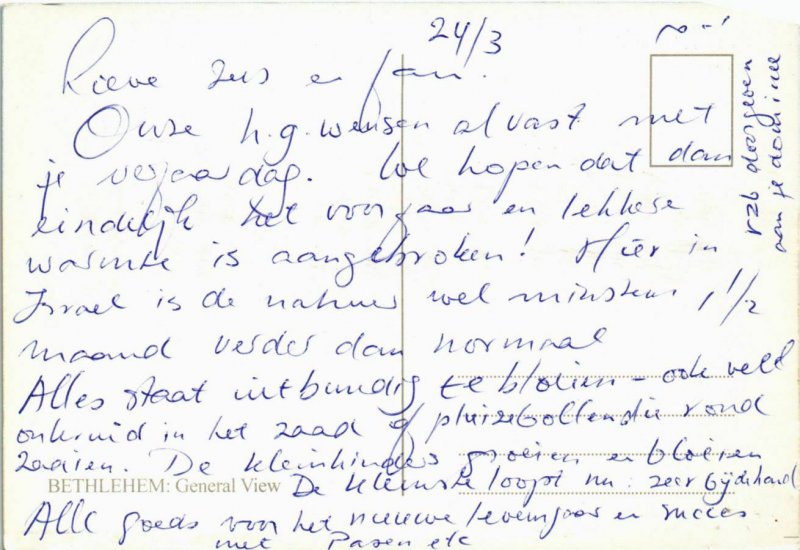 24/3
Lieve zus en Jan.
Onze h.g. wensen alvast met
je verjaardag. We hopen dat dan
eindelijk het voorjaar en lekkere
warmte is aangebroken! Hier in
Israel is de natuur wel minstens 1 1/2
maand verder dan normaal
Alles staat uitbundig te bloeien - ook veel
onkruid in het zaad of pluizebollen die rond
zaaien. De kleinkinders groeien en bloeien
BETHLEHEM: General View
De kleinste loopt nu: zeer bijdehand
Alle goeds voor het nieuwe levensjaar en succes
met Pasen etc
doorgeven
aan je dominee